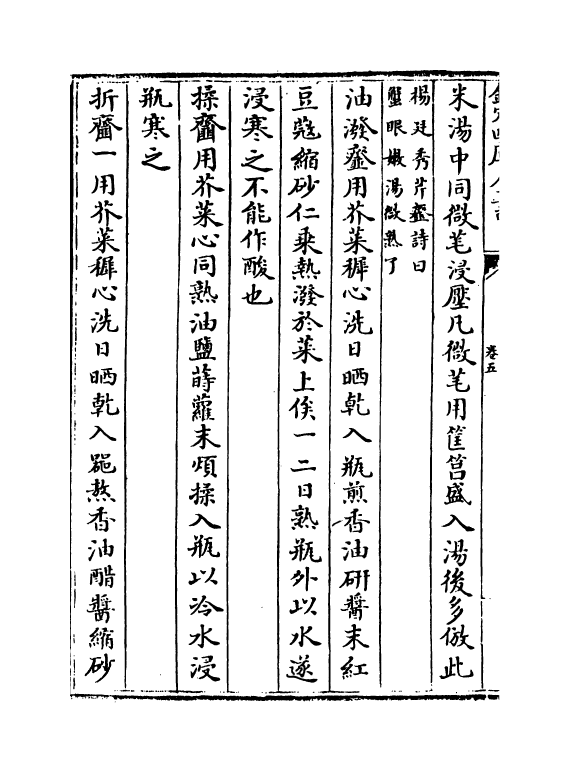 欽定四庫全書
卷五
米湯中同微芼浸壓凡微芼用筐筥盛入湯後多倣此
楊廷秀芹虀詩曰
蟹眼嫩湯微熟了
油潑虀用芥菜穉心洗日晒乾入瓶煎香油研醬末紅
豆蔻縮砂仁乘熱潑於菜上俟一二日熟瓶外以水遂
浸寒之不能作酸也
揉虀用芥菜心同熟油鹽蒔蘿末煩揉入瓶以冷水浸
瓶寒之
折虀一用芥菜穉心洗日晒乾入器熬香油醋醬縮砂